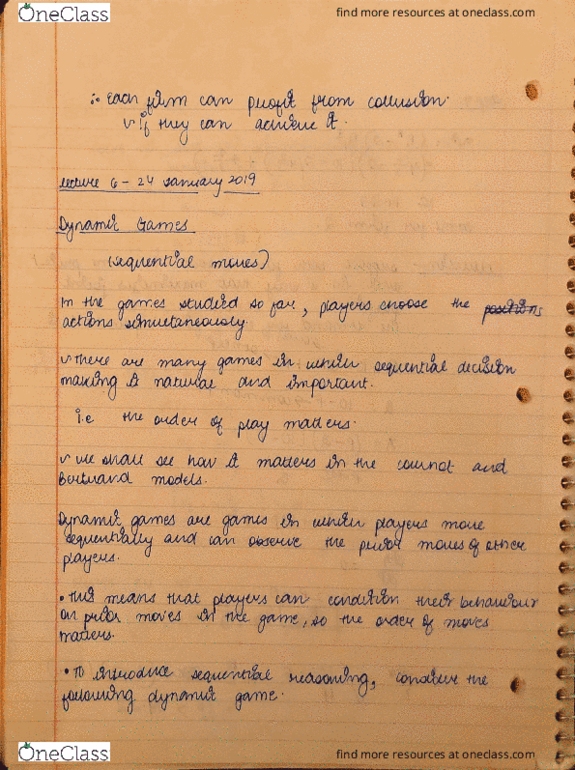 OneClass
find more resources at oneclass.com
∴ each firm can profit from collusion.
↳ if they can achieve it.
Lecture 6 - 24 January 2019
Dynamic Games
(sequential moves)
In the games studied so far, players choose the positions
actions simultaneously.
↳ there are many games in which sequential decision
making is natural and important.
i.e the order of play matters.
↳ we shall see how it matters in the cournot and
Bertrand models.
Dynamic games are games in which players move
sequentially and can observe the prior moves of other
players.
• This means that players can condition their behaviour
on prior moves in the game, so the order of moves
matters.
• To introduce sequential reasoning, consider the
following dynamic game.
OneClass
find more resources at oneclass.com